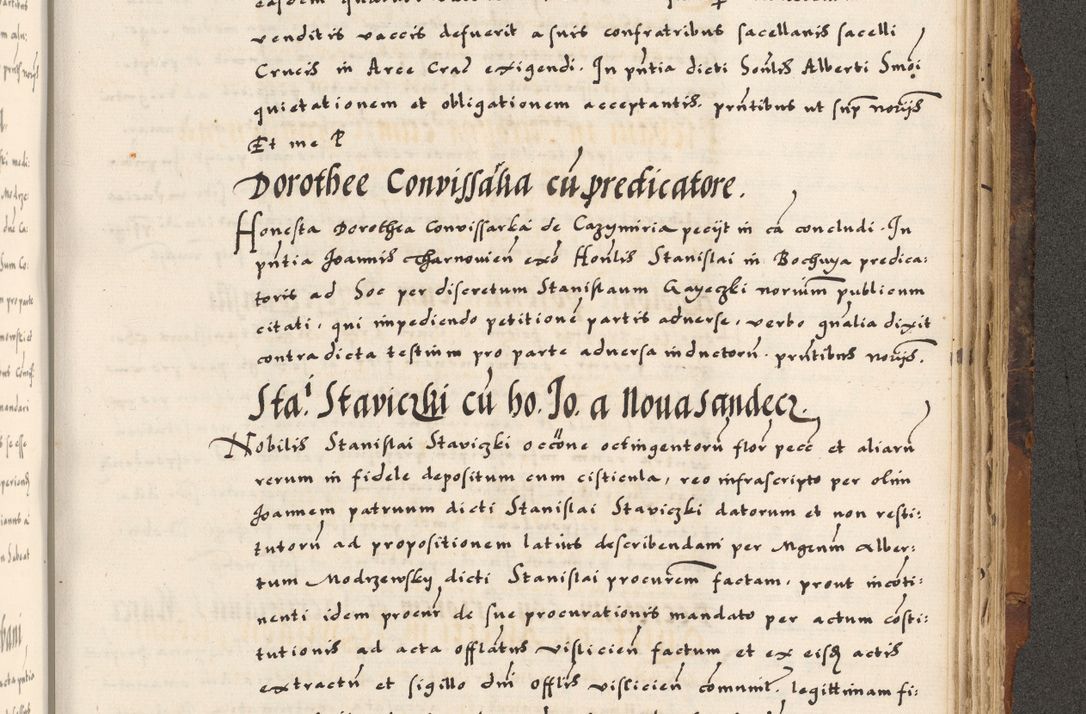 venditis vaccis defuerit a suis confratribus sacellanis sacelli
Crucis in Arce Crac exigendi. In pntia dicti Honlis Alberti
quietationem et obligationem acceptantis. prntibus ut sup noriis
Et me P
Dorothee Convissarka cu predicatore.
Honesta Dorothea Convissarka de Cazymiria peciit in ca concludi. In
pntia Joannis Tharnovien exo Honlis Stanislai in Bochnya predica:
toris ad hoc per discretum Stanislaum Gayeczki norium publicum
citati, qui impediendo petitione partis adverse, verbo gnalia dixit
contra dicta testium pro parte adversa inductoru. prntibus noriis.
Sta.i Staviczki cu ho. Jo. a Nova Sandecz.
Nobilis Stanislai Staviczki occone octingentoru flor pecc et aliaru
rerum in fidele depositum cum cisticula, reo infrascripto per olim
Joannem patruum dicti Stanislai Staviczki datorum et non resti:
tutoru ad propositionem latius describendam per Mgrum Alber:
tum Modrzewsky dicti Stanislai procurem factam, prout incoti:
nenti idem procur de sue procurationis mandato per actum costi:
tutionis ad acta offlatus vislicien factum et ex eisq actis
extractu et sigillo dni offlis vislicien comunit. legittimam fi: